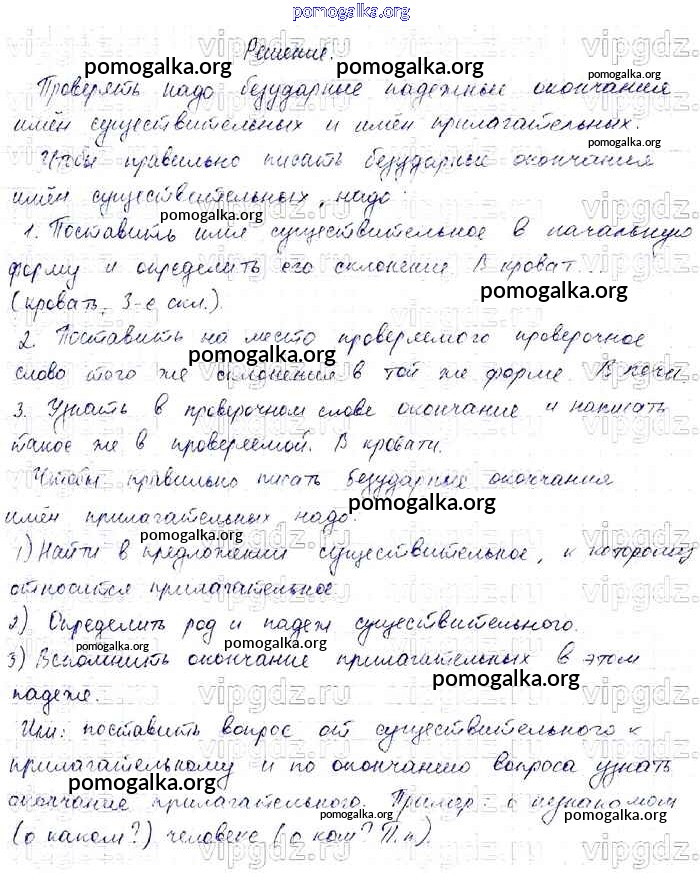 pomogalka.org
Решение.
Проверять надо безударные падежные окончания
имён существительных и имён прилагательных.
Чтобы правильно писать безударные окончания
имён существительных, надо:
1. Поставить имя существительное в начальную
форму и определить его склонение В кроват...
(кровать, 3-е скл.).
2. Поставить на место проверяемого проверочное
слово того же склонения в той же форме В печи
3. Узнать в проверочном слове окончание и написать
такое же в проверяемой. В кровати.
Чтобы правильно писать безударные окончания
имён прилагательных надо:
1) Найти в предложении существительное, к которому
относится прилагательное
2) Определить род и падеж существительного.
3) Вспомнить окончание прилагательных в этом
падеже.
Или: поставить вопрос от существительного к
прилагательному и по окончанию вопроса узнать
окончание прилагательного. Пример: о незнакомом
(о каком?) человеке (о ком? П.п).